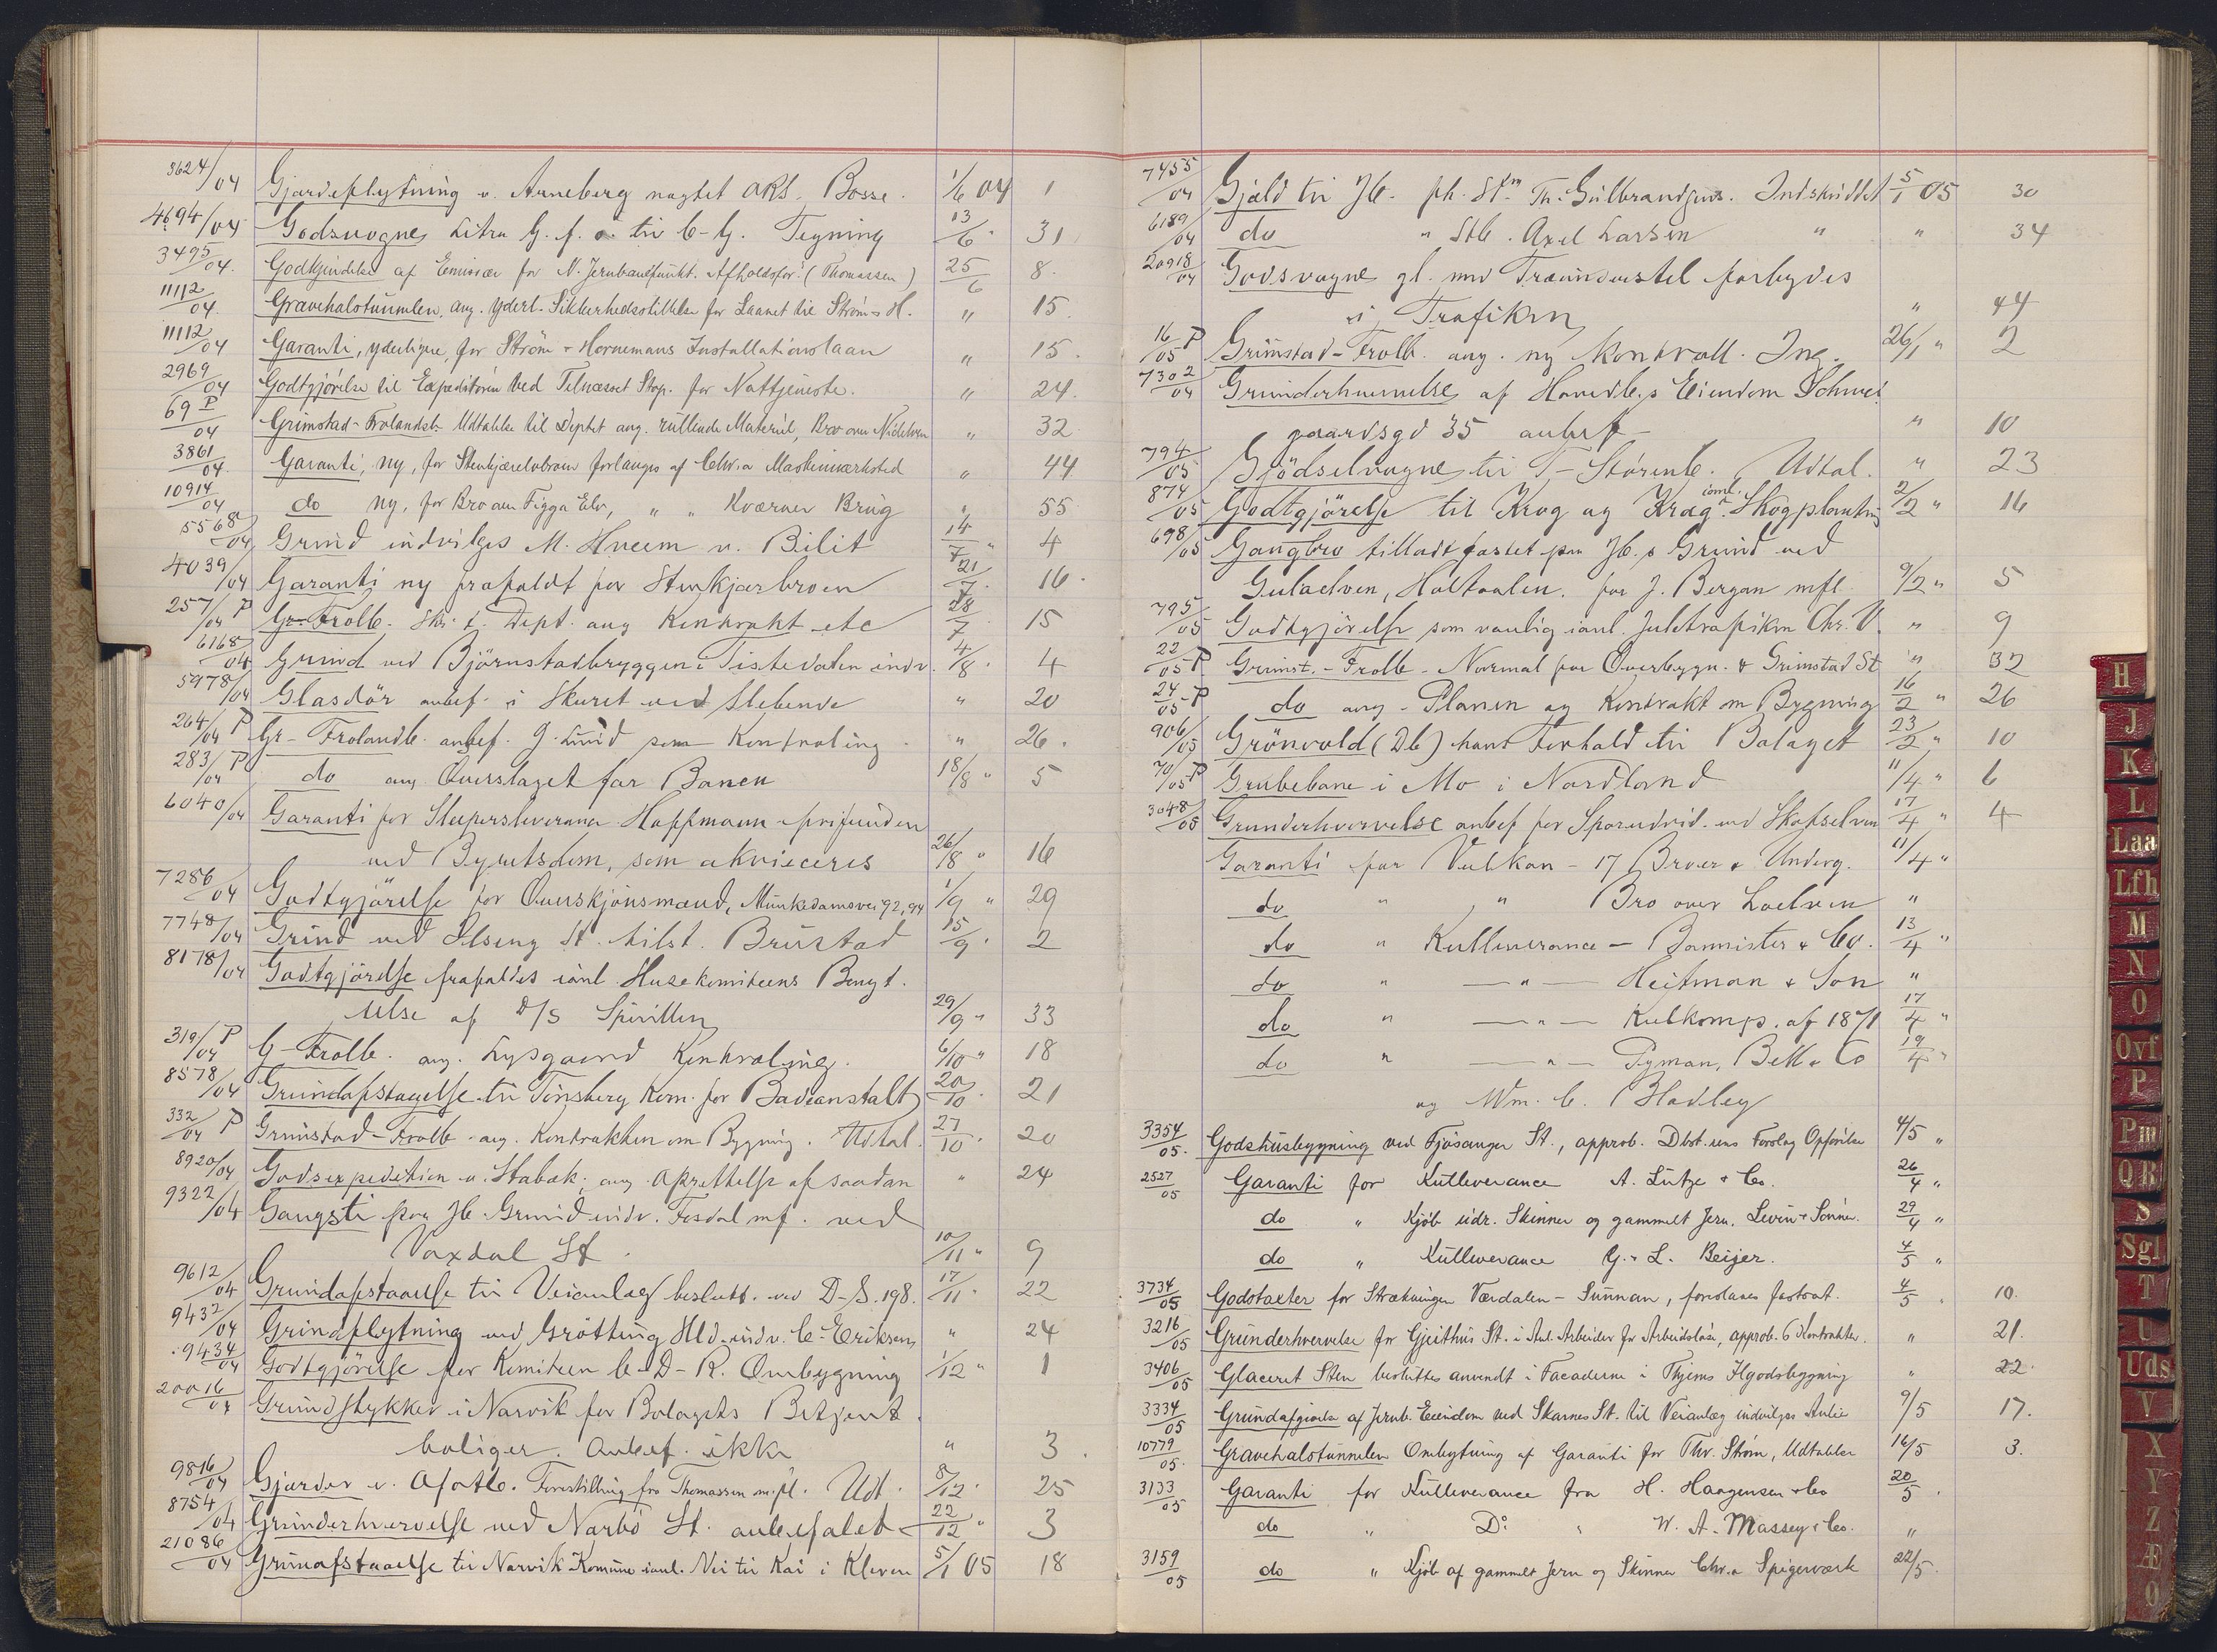 3624/04 Gjærdeflytning v. Arneberg nægtet Bosse. 1/6 04 1
4694/04 Godsvogne, Litra G. f. tri C-G. Tegning 13/6 " 31
3495/04. Godtgjørelse af Emissær for N. Jernbanefunkt. Afholdsfor. (Thomassen) 25/6 8.
11112/04. Gravehalstunnelen, ang. yderl. Sikkerhedsstillelse for Laanet til Strøm & H. " 15.
11112/04 Garanti, yderligere, for Strøm & Hornemans Installationslaan " 15.
2969/04 Godtgjörelse til Expeditören ved Stop. for Nattjeneste. " 24.
69 P/04 Grimstad-Frolandsb. Udtalelse til Deptet ang. rullende Materiel, Bro over Nidelven " 32
3861/04. Garanti, ny, for Stenkjærelvbroen forlanges af Chr.a Mask. værksted " 44
10914/04 do ny, for Bro over Figga Elv, " " Kværner Brug " 55
5568/04 Grind indvilges M. Hveem v. Bilit 14/7 " 4
4039/04 Garanti ny frafaldt for Stenkjærbroen 21/7 16.
257/04 P Gr-Frolb. Skr. t. Dept. ang Kontrakt etc 28/7 15
6168/04 Grind ved Björnstadbryggen i Tistedalen indv. 4/8 " 4
5978/04 Glasdör anbef. i Skuret ved Slebende " 20
264/04 P Gr-Frolandb. anbef. G. Lund som Kontroling. " 26.
283/04 P do ang Overslaget for Banen 18/8 " 5
6040/04 Garanti for Sleepersleverance Hoffmann frifunden
ved Byretsdom, som akviesceres 26/8 " 16
7286/04 Godtgjörelse for Overskjönsmænd, Munkedamsvei 92,94 1/9 " 29
7748/04 Grind ved Ilseng St. tilst. Brustad 15/9 " 2
8178/04 Godtgjörelse frafaldes ianl. Husekomiteens Benyt.
telse af D/S Spirillen 29/9 " 33
319/04 P G-Frolb. ang. Lysgaard Kontroling. 6/10 " 18
8578/04 Grundafstaaelse til Tönsberg Kom. for Badeanstalt 20/10 " 21
332/04 P Grimstad-Frolb. ang. Kontrakten om Bygning. Udtal. 27/10 " 20
8920/04 Godsexpedition v. Stabæk, ang Oprettelse af saadan " 24
9322/04 Gangsti paa Jb. Grund indv. Fosdal mf. ved
Vaxdal St. 10/11 " 9
9612/04 Grundafstaaelse til Veianlæg beslutt. ved D-S. 198. 17/11 " 22
9432/04 Grindflytning ved Gröttting Hld. indv. C. Eriksen " 24
9434/04 Godtgjörelse for Komiteen C-D-R. Ombygning 1/12 " 1
20016/04 Grundstykker i Narvik for Bolagets Betjent
boliger. Anbef. ikke " 3.
9816/04 Gjærder v. Ofotb. Forestilling fra Thomassen m.fl. Udt. 8/12 " 25
8754/04 Grunderhvervelse ved Narbö St. anbefalet 22/12 " 3
21086/04 Grunafstaaelse til Narvik Komune ianl. Vei til Kai i Kleven 5/1 05 18
7455/04 Gjæld til Jb. fh. Stm Th. Gulbrandsens. Indskuddet 5/1 05 30
6189/04 do " Stb. Axel Larsen " " 34
20918/04 Godsvogne gl. med Træunderstel forbydes
i Trafiken " 44
16/05 P Grimstad-Frolb. ang. ny Kontroll. Ing. 26/1 " 2
7302/04 Grunderhvervelse af Hovedb.s Eiendom Schwei-
gaardsgd 35 anbef " 10
794/05 Gjödselvogne til T-Störenb. Udtal. " 23
874/05 Godtgjörelse til Krog og Krag ianl. Skogplantn 2/2 " 16
698/05 Gangbro tilladt fæstet paa Jb.s Grund ved
Gulaelven, Holtaalen, for J. Bergan mfl. 9/2 " 5
795/05 Godtgjörelse som vanlig ianl. Juletrafiken Chr. V. " 9
22/05 P Grimst.-Frolb. Normal for Overbygn. & Grimstad St " 32
24/05 P do ang. Planen og Kontrakt om Bygning 16/2 " 26
906/05 Grönvold (Db) hans Forhold til Bolaget 23/2 " 10
70/05 P Grubebane i Mo i Nordland 11/4 " 6
3048/05 Grunderhvervelse anbef for Sporudvid. ved Skopselven 17/4 " 4
Garanti for Vulkan - 17 Broer & Underg. 11/4 "
do " " Bro over Loelven "
do " Kulleverance - Bannister & Co. 13/4 "
do " — " — Heitman & Son "
do " — " — Kulkomp. af 1871 17/4 "
do " — " — Pyman, Bell & Co 19/4 "
og Wm. C. Bladley
3354/05. Godshusbygning ved Fjøsanger St., approb. Dbst.ens Forslag Opførelse 4/5 "
2527/05 Garanti for Kulleverance A. Lutze & Co. 26/4 "
do " Kjøb udr. Skinner og gammelt Jern. Levin & Sønner. 29/4 "
do " Kulleverance G. & L. Beijer. 4/5 "
3734/05 Godstaxter for Strækningen Værdalen - Sunnan, foreslaaes fastsat. 4/5 " 10.
3216/05 Grunderhvervelse for Gjeithus St. i Anl. Arbeider for Arbeidsløse, approb. 6 Kontrakter. " 21.
3406/05 Glaceret Sten besluttes anvendt i Facaderne i Thjems Ilgodsbygning " 22.
3334/05 Grundafgivelse af Jernb. Eiendom ved Skarnes St. til Veianlæg indvilges Amtet 9/5 17.
10779/05. Gravehalstunnelen Ombytning af Garanti for Thv. Strøm, Udtalelse 16/5 3.
3133/05 Garanti for Kulleverance fra H. Haagensen & Co 20/5 "
do " Do " W. A. Massey & Co. "
3159/05 do " Kjøb af gammelt Jern og Skinner Chr.a Spigerverk 22/5.
H
J
K
L
Laa
Lfh
M
N
O
Ovf
P
Pm
Q R
S
Sgl
T
U
Uds
V
X
Y
Z
Æ
Ø